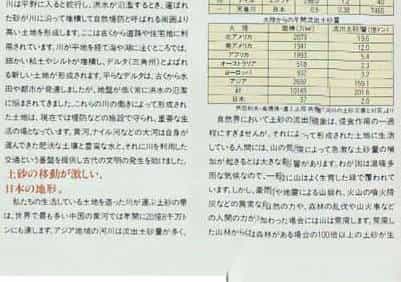 川は平野に入ると蛇行し、洪水が氾濫するとき、運ばれ
た砂が川に沿って堆積して自然堤防と呼ばれる周囲より
高い土地を形成します。ここは古くから道路や住宅地に利
用されています。川が平地を経て海や湖に注ぐところでは、
細かい粘土やシルトが堆積し、デルタ(三角州)とよばれ
る新しい土地が形成されます。平らなデルタは、古くから水
田や都市が発達しましたが、地盤が低く常に洪水の氾濫
に悩まされてきました。これらの川の働きによって形成され
た土地は、現在では堤防などの施設で守られ、重要な生
活の場となっています。黄河、ナイル河などの大河は自身が
運んできた肥沃な土壌と豊富な水と、それに川を利用した
交通という基盤を提供し古代の文明の発生を助けました。
土砂の移動が激しい、
日本の地形。
私たちの生活している土地を造った川が運ぶ土砂の量
は、世界で最も多い中国の黄河では年間に20億8千万ト
ンにも達します。アジア地域の河川は流出土砂量が多く、
大陸からの年間流出土砂量
大陸 面積(万km²) 流出土砂量(億トン)
北アメリカ 2073 19.6
南アメリカ 1941 12.0
アフリカ 1993 5.4
オーストラリア 518 2.3
ヨーロッパ 932 3.2
アジア 2688 159.1
計 10145 201.6
日本 37 2.0
自然界において土砂の流出現象は、侵食作用の一過
程にすぎませんが、それによって形成された土地に生活し
ている人間には、山の荒廃によって急激な土砂量の増
加が起きるとは大きな影響があります。わが国は温暖多
雨な気候なので、一般に山はよく生育した緑で覆われて
います。しかし、豪雨や地震による山崩れ、火山の噴火降
灰などの異常な自然の力や、森林の乱伐や山火事など
の人間の力が加わった場合には山は荒廃します。荒廃し
た山林からは森林がある場合の100倍以上の土砂が生